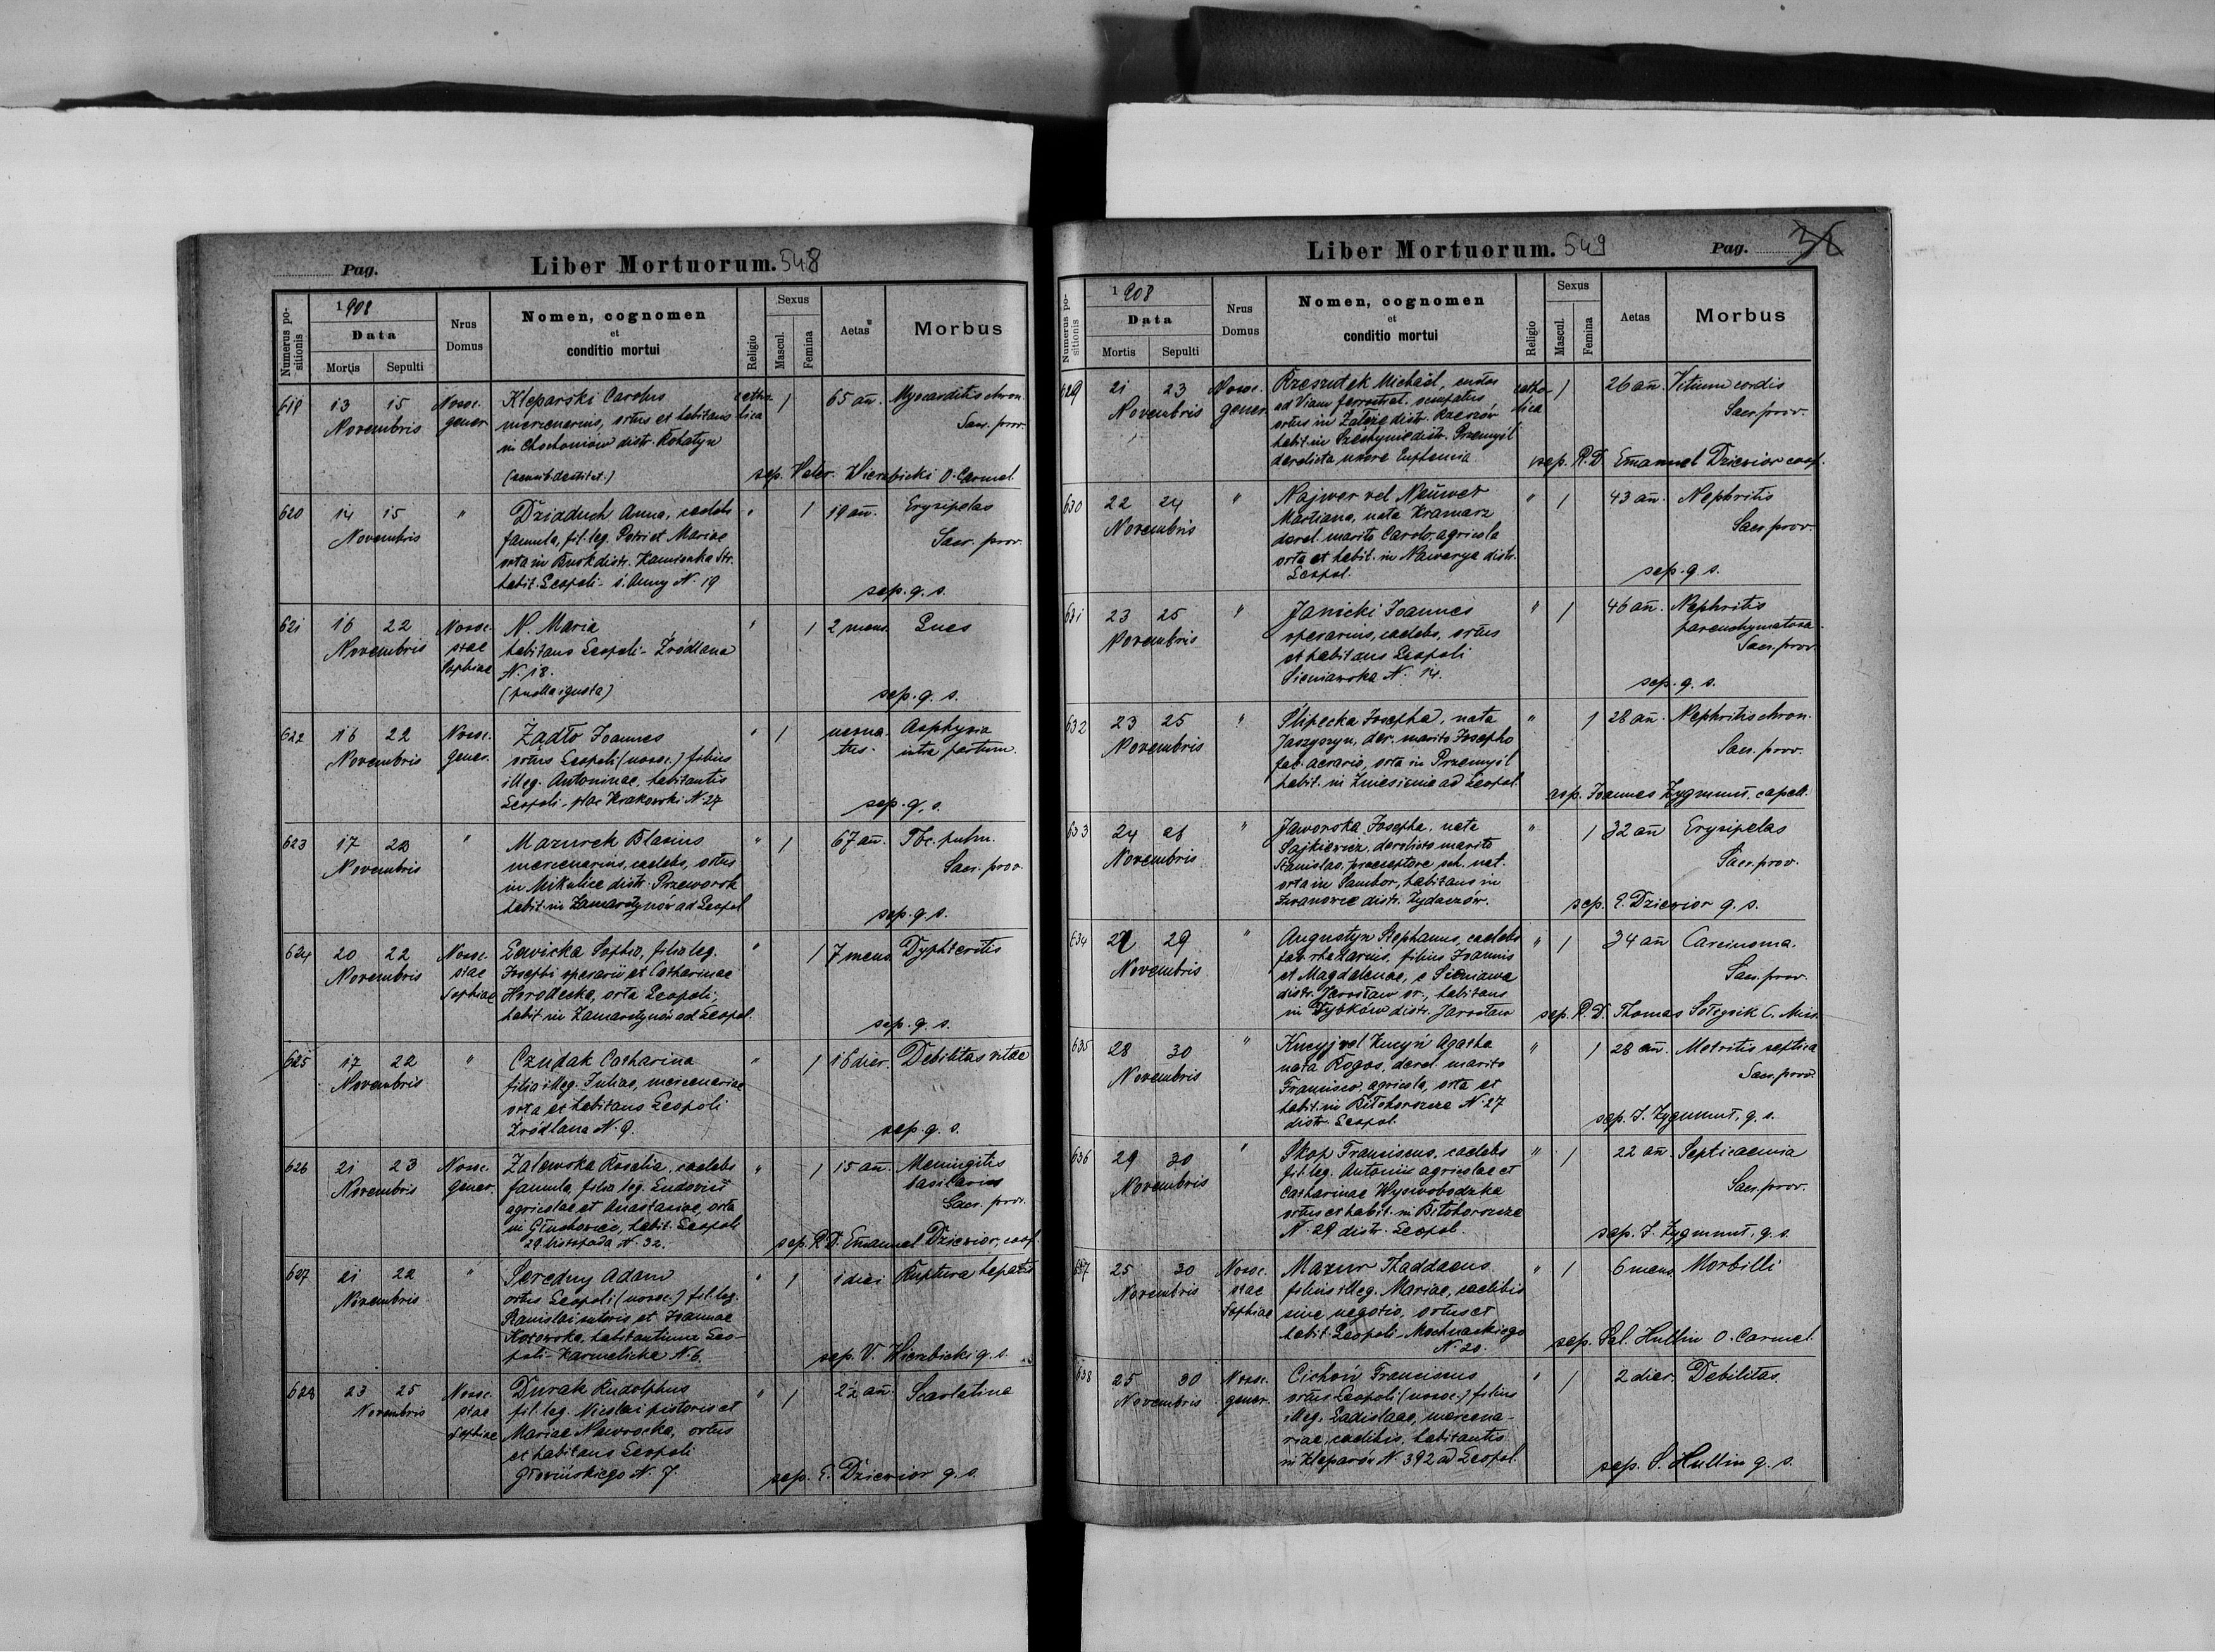 Pag. Liber Mortuorum. 548
Numerus positionis
1908
Data
Mortis Sepulti
Nrus Domus
Nomen, cognomen
et
conditio mortui
Religio
Sexus
Mascul. Femina
Aetas
Morbus
619 13 15 Nosoc. Kleparski Carolus catho 1 65 añ. Myocarditis chron.
Novembris gener. mercenarius, ortus et habitans lica Sacr. prov.
in Chochoniów distr. Rohatyn
sep. Valer. Wierzbicki O. Carmel.
620 14 15 " Dziaduch Anna, caelebs " 1 19 añ. Erysipelas
Novembris famula, fil. leg. Petri et Mariae Sacr. prov.
orta in Busk distr. Kamionka Str.
habit. Leopoli - ś. Anny N. 19 sep. q. s.
621 16 22 Nosoc. N. Maria " 1 2 mens. Lues
Novembris stae habitans Leopoli - Źródlana
Sophiae N. 18.
sep. q. s.
622 16 22 Nosoc. Żądło Joannes " 1 Asphyxia
Novembris gener. ortus Leopoli (nosoc.) filius intra partum
illeg. Antoninae, habitantis
Leopoli - plac Krakowski N. 27 sep. q. s.
623 17 22 " Mazurek Blasius " 1 67 añ. Tbc. pulm.
Novembris mercenarius, caelebs, ortus Sacr. prov.
in Mikulice distr. Przeworsk
habit. in Zamarstynów ad Leopol. sep. q. s.
624 20 22 Nosoc. Lewicka Sophia, filia leg. " 1 7 mens. Dyphteritis
Novembris stae Josephi operarii et Catharinae
Sophiae Horodecka, orta Leopoli,
habit. in Zamarstynów ad Leopol. sep. q. s.
625 17 22 " Czudak Catharina " 1 16 dier. Debilitas vitae
Novembris filia illeg. Juliae, mercenariae
orta et habitans Leopoli
Źródlana N. 9. sep. q. s.
626 21 23 Nosoc. Zalewska Rosalia, caelebs " 1 15 añ. Meningitis
Novembris gener. famula, filia leg. Ludovici basilaris
agricolae et Anastasiae, orta Sacr. prov.
in Głuchowice, habit. Leopoli
29 listopada N. 32. sep. R. D. Emanuel Dziewior, coop.
627 21 22 " Seredny Adam " 1 1 diei Ruptura hepatis
Novembris ortus Leopoli (nosoc.) fil. leg.
Stanislai sutoris, et Joannae
Kozowska, habitantium Leo-
poli - Karmelicka N. 6. sep. V. Wierzbicki q. s.
628 23 25 Nosoc. Durak Rudolphus " 1 2½ añ. Scarlatina
Novembris stae fil. leg. Nicolai pistoris et
Sophiae Mariae Nawrocka, ortus
et habitans Leopoli
Głowińskiego N. 7. sep. E. Dziewior q. s.
Liber Mortuorum. 549 Pag. 36
Numerus positionis
1908
Data
Mortis Sepulti
Nrus Domus
Nomen, cognomen
et
conditio mortui
Religio
Sexus
Mascul. Femina
Aetas
Morbus
629 21 23 Nosoc. Rzeszutek Michaël, custos catho 1 26 añ. Vitium cordis
Novembris gener. ad Viam ferream lica Sacr. prov.
ortus in Załęże distr. Rzeszów
habit. in distr. Przemyśl
derelicta uxore Euphemia sep. R. D. Emanuel Dziewior coop.
630 22 24 " Najwer vel Neuwer " 1 43 añ. Nephritis
Novembris Martiana, nata Kramarz Sacr. prov.
derel. marito Carolo, agricola
orta et habit. in Nawarya distr.
Leopol. sep. q. s.
631 23 25 " Janicki Joannes " 1 46 añ. Nephritis
Novembris operarius, caelebs, ortus parenchymatosa.
et habitans Leopoli Sacr. prov.
Sieniawska N. 14. sep. q. s.
632 23 25 " Ślipecka Josepha, nata " 1 28 añ. Nephritis chron.
Novembris Jaszyszyn, der. marito Josepho Sacr. prov.
fab. aerario, orta in Przemyśl
habit. in Zniesienie ad Leopol. sep. Joannes Zygmunt, capell.
633 24 26 " Jaworska Josepha, nata " 1 32 añ Erysipelas
Novembris Sajkiewicz, derelicto marito Sacr. prov.
Stanislao, praeceptore sch. nat.
orta in Sambor, habitans in
Iwanowce distr. Żydaczów. sep. E. Dziewior q. s.
634 27 29 " Augustyn Stephanus, caelebs " 1 34 añ Carcinoma.
Novembris fab. rhedarius, filius Joannis Sacr. prov.
et Magdalenae, e Sieniawa
distr. Jarosław or., habitans
in Dybków distr. Jarosław sep. R. D. Thomas Sołtysik C. Miss.
635 28 30 " Kucyj vel Kucyń Agatha " 1 28 añ. Metritis septica
Novembris nata Rogos, derel. marito Sacr. prov.
Francisco, agricola, orta et
habit. in Biłohorszcze N. 27
distr. Leopol. sep. J. Zygmunt, q. s.
636 29 30 " Skop Franciscus, caelebs " 1 22 añ Septicaemia
Novembris fil. leg. Antonii agricolae et Sacr. prov.
Catharinae Wyswobodzka
ortus et habit. in Biłohorszcze
N. 29 distr. Leopol. sep. J. Zygmunt, q. s.
637 25 30 Nosoc. Mazur Thaddaeus " 1 6 mens. Morbilli
Novembris stae filius illeg. Mariae, caelibis
Sophiae sine negotio, ortus et
habit. Leopoli - Mochnackiego
N. 20. sep. Hullin O. Carmel.
638 25 30 Nosoc. Cichoń Franciscus " 1 2 dier. Debilitas.
Novembris gener. ortus Leopoli (nosoc.) filius
illeg. Ladislaae, mercena-
riae, caelibis, habitantis
in Kleparów N. 392 ad Leopol. sep. S. Hullin q. s.